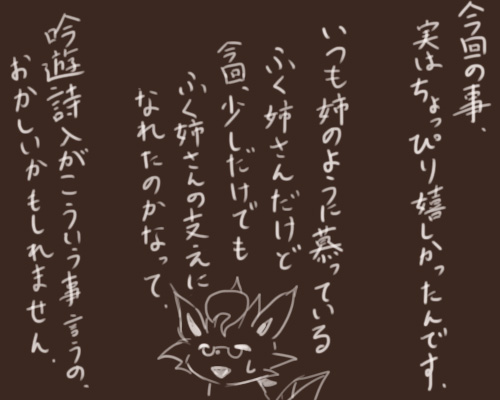 今回の事、
実はちょっぴり嬉しかったんです。
いつも姉のように慕っている
ふく姉さんだけど
今回、少しだけでも
ふく姉さんの支えに
なれたのかなって。
吟遊詩人がこういう事言うの、
おかしいかもしれません。